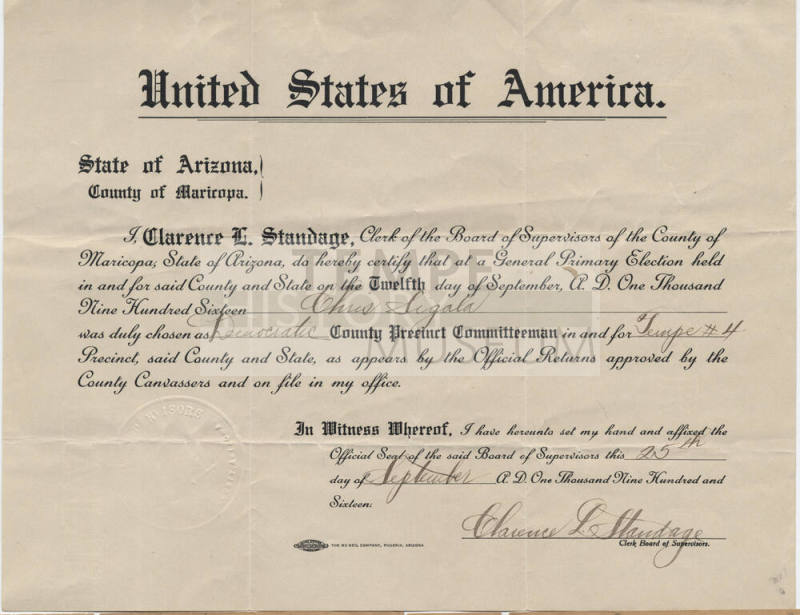 United States of America.
State of Arizona,
County of Maricopa.
I, Clarence L. Standage, Clerk of the Board of Supervisors of the County of
Maricopa, State of Arizona, do hereby certify that at a General Primary Election held
in and for said County and State on the Twelfth day of September, A. D. One Thousand
Nine Hundred Sixteen Chris Sigala
was duly chosen as Democratic County Precinct Committeeman in and for Tempe #4
Precinct, said County and State, as appears by the Official Returns approved by the
County Canvassers and on file in my office.
TEMPE
HISTORY
MUSEUM
In Witness Whereof, I have hereunto set my hand and affixed the
Official Seal of the said Board of Supervisors this 25th
day of September A. D. One Thousand Nine Hundred and
Sixteen.
Clarence L. Standage
Clerk Board of Supervisors.
THE MCNEIL COMPANY, PHOENIX, ARIZONA